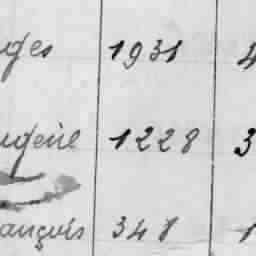 ges 1931 4
ugène 1228 3
ançois 348 1